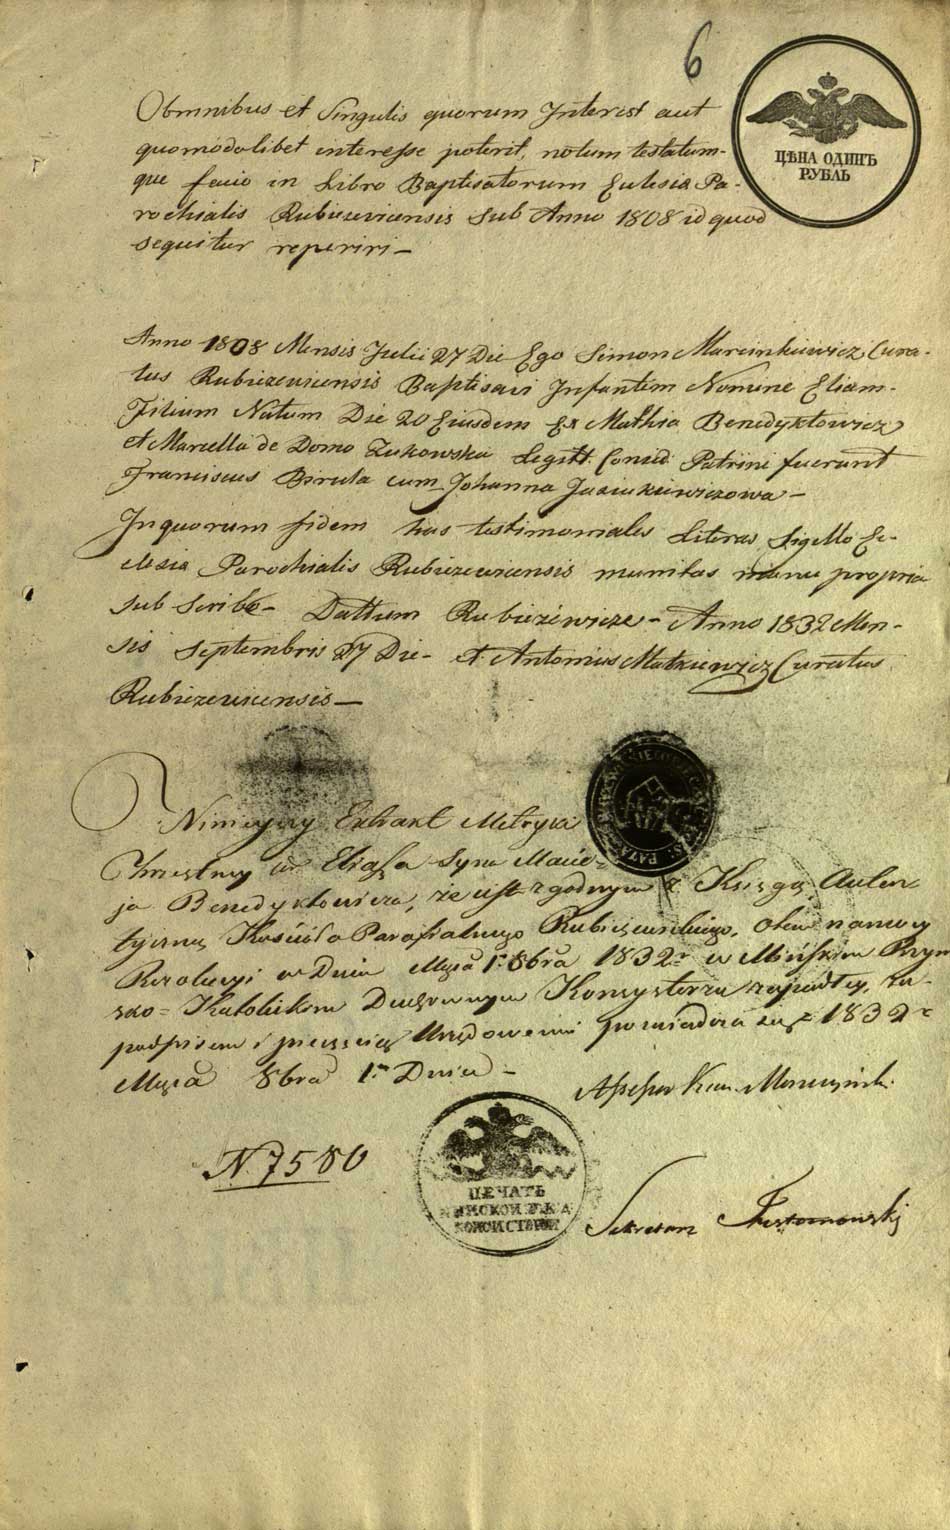 6
ЦѢНА ОДИНЪ
РУБЛЬ
Obmnibus et Singulis quorum Interest aut
quomodolibet interesse poterit, notum testatum-
que facio in Libro Baptisatorum Eclesia Pa-
rochialis Rubiezeviciensis sub Anno 1808 id quod
sequitur reperiri-
Anno 1808 Mensis Julii 27 Die Ego Simon Marcinkiewicz Cura-
tus Rubiezeviciensis Baptisavi Infantem Nomine Eliam-
Filium Natum Die 20 Eiusdem Ex Mathia Benedyktowicz
et Marcella de Domo Zukowska Legitt. Patrini fuerunt
Franciscus Birula cum Johanna Jusiukiewiczowa-
In quorum fidem has testimoniales Literas Sigillo Ec-
clesia Parochialis Rubiezeviciensis munitas manu propria
sub scribo- Dattum Rubieżewicze- Anno 1832 Men-
sis Septembris 27 Die- Antonius Matkiewicz Curatus
Rubiezeviciensis-
Ninieyszy Extrakt Metryka
Chrzestney Eliasza Syna Macie-
ja Benedyktowicza, że iest zgodnym z Księgą Auten-
tyczną Kościoła Parafialnego Rubieżewickiego, na mocy
Rezolucyi w Dniu Msca 1. 8bra 1832 w Mińskim Rzym
sko=Katolickim Duchownym Konsystorzu za-
podpisem i pieczęcią Urzędowemi poswiadcza się 1832
Msca 8bra 1 Dnia-
N. 7580
ПЕЧАТЬ
МИНСКОЙ
КОНСИСТОРІИ
Sekretarz